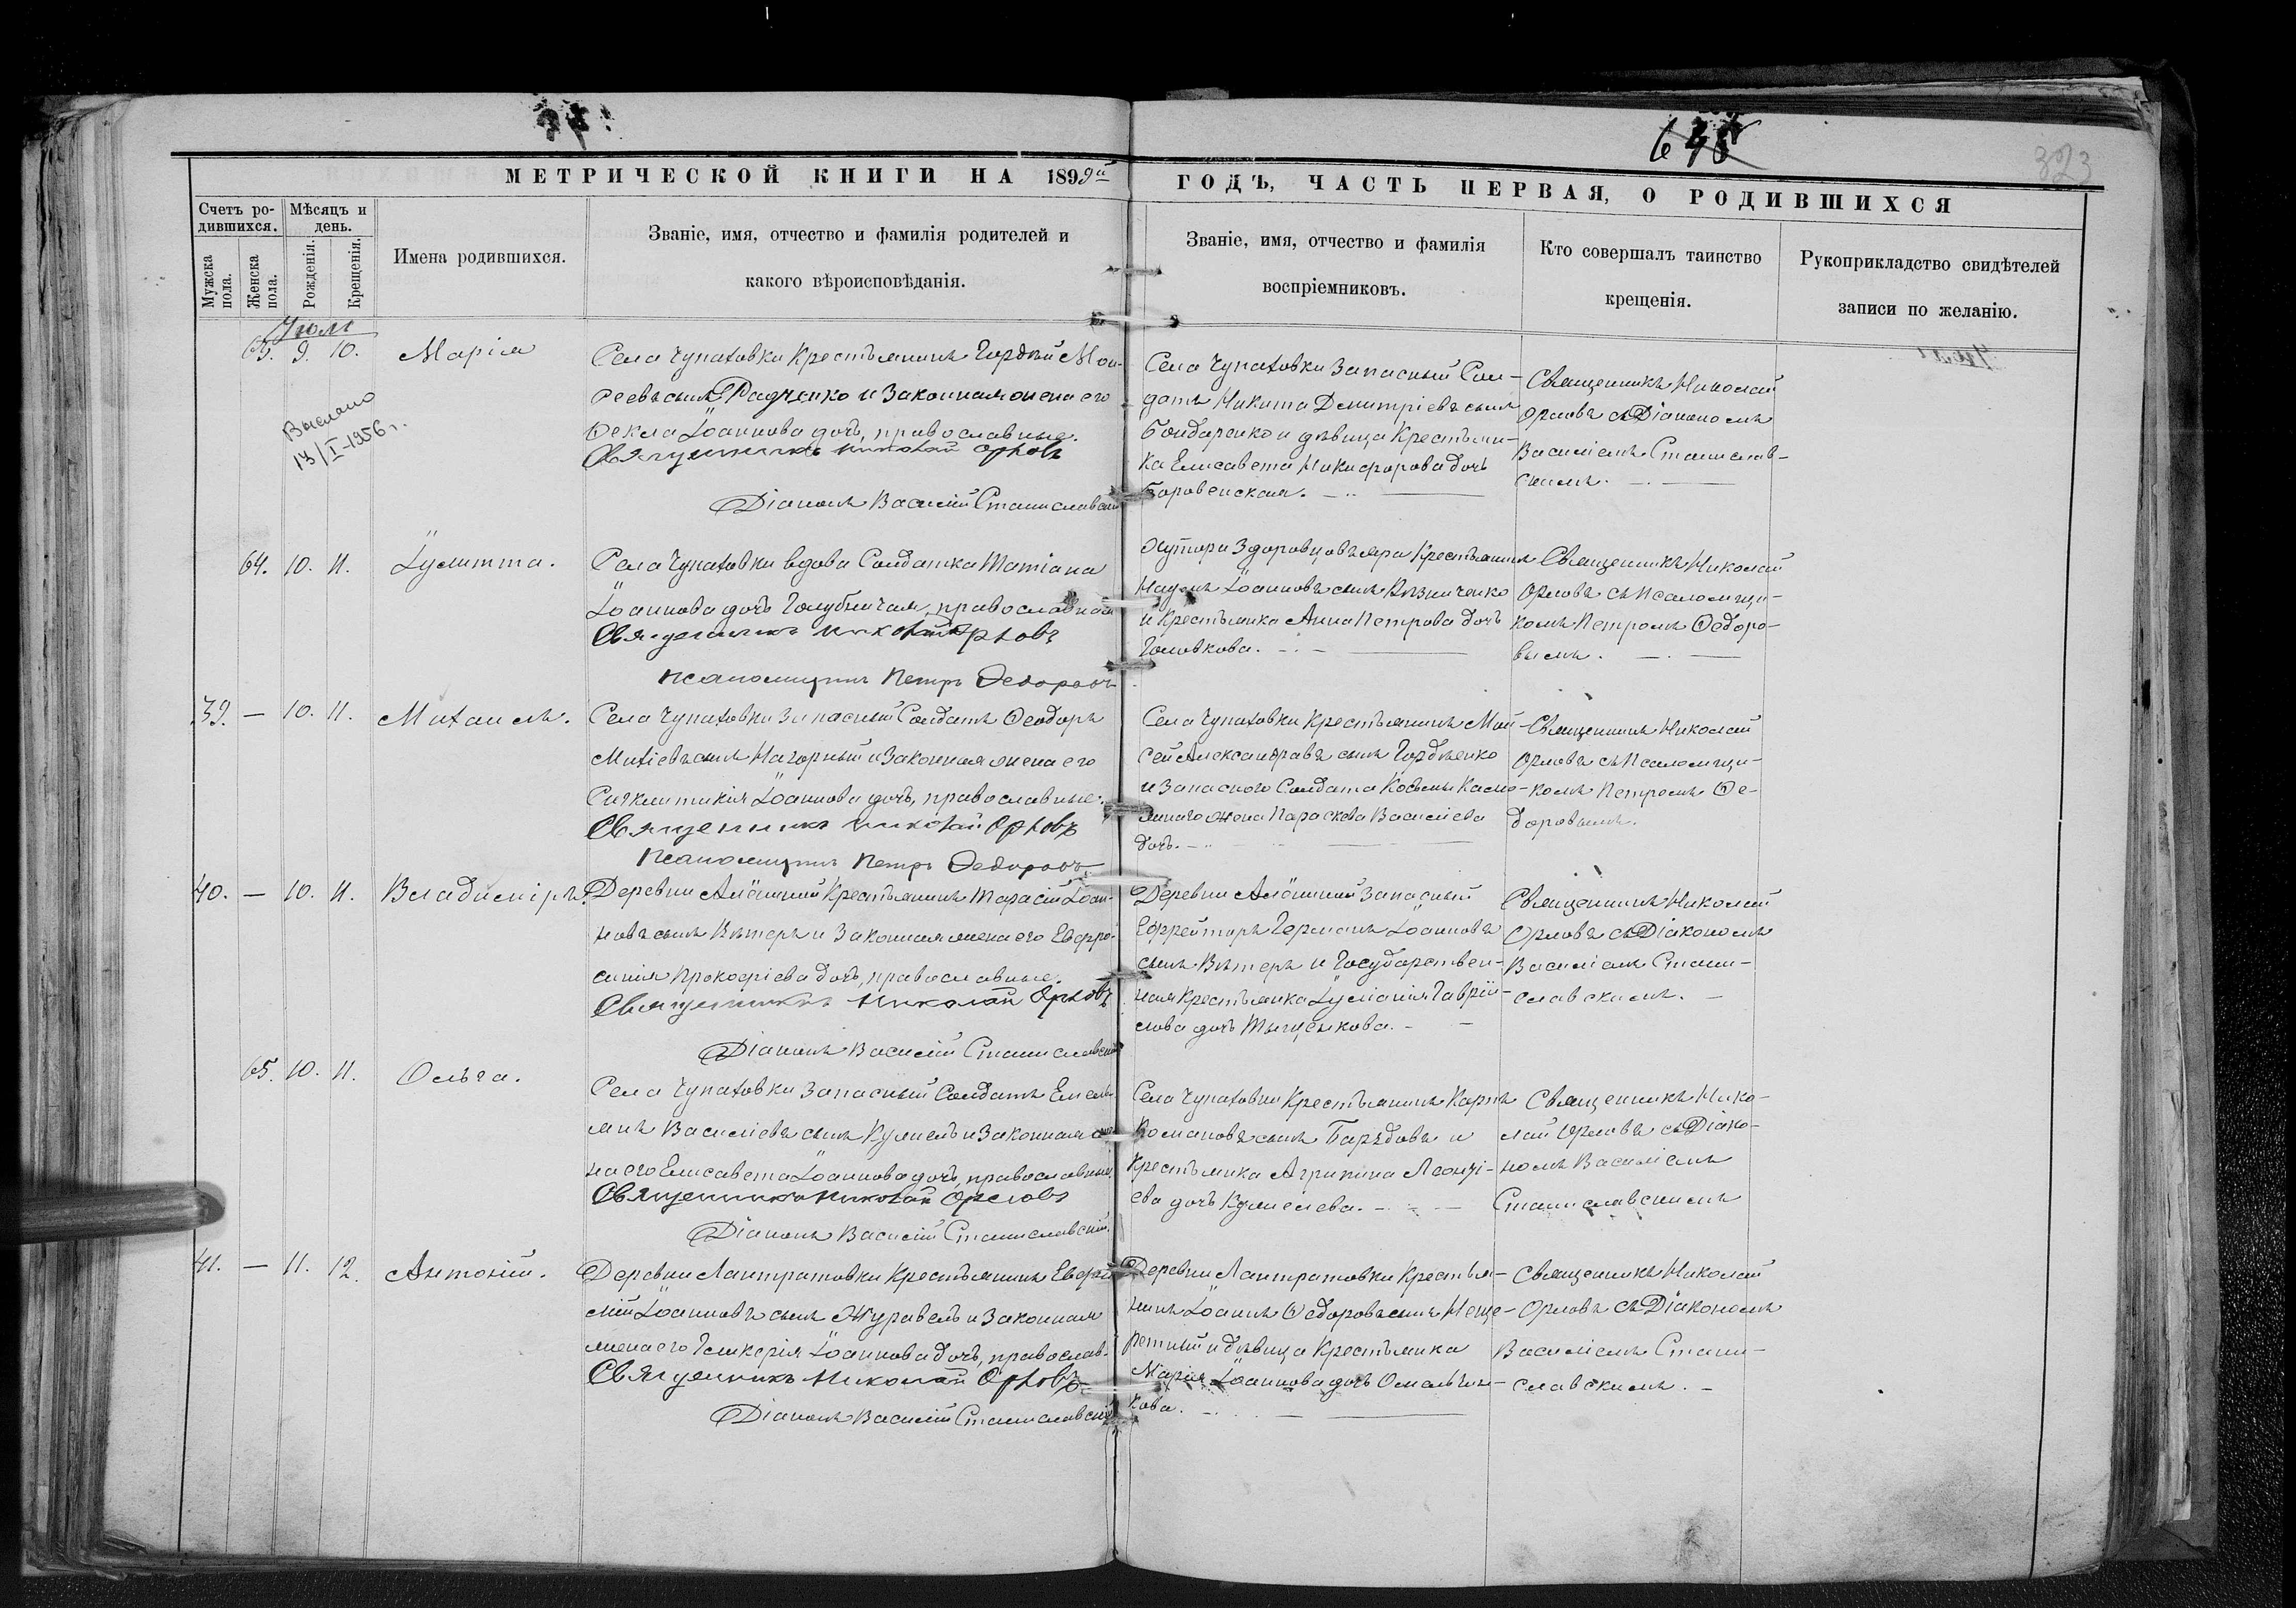 645
323
МЕТРИЧЕСКОЙ КНИГИ НА 1899й ГОДЪ, ЧАСТЬ ПЕРВАЯ, О РОДИВШИХСЯ
Счетъ ро-
дившихся.
Мужска пола.
Женска пола.
Мѣсяцъ и
день.
Рожденія.
Крещенія.
Имена родившихся.
Званіе, имя, отчество и фамилія родителей и
какого вѣроисповѣданія.
Званіе, имя, отчество и фамилія
воспріемниковъ.
Кто совершалъ таинство
крещенія.
Рукоприкладство свидѣтелей
записи по желанію.
Іюль
63. 9. 10. Марія
Выслано
13/I-1956 г.
Села Чупаховки Крестьянинъ Гордѣй Мои-
сеевъ сынъ Радченко и законная жена его
Ѳекла Іоаннова дочь, православные.
Священникъ Николай Орловъ
Діаконъ Василій Станиславскій
Села Чупаховки Запасный Сол-
датъ Никита Димитріевъ сынъ
Бондаренко и дѣвица Крестьян-
ка Елисавета Никифорова дочь
Боровенская.
Священникъ Николай
Орловъ съ Діакономъ
Василіемъ Станислав-
скимъ.
64. 10. 11. Іулитта.
Села Чупаховки вдова Солдатка Татіана
Іоаннова дочь Голубничая, православная
Священникъ Николай Орловъ
Псаломщикъ Петръ Ѳедоровъ
Хутора Здоровцовъ яра Крестьянинъ
Наумъ Іоанновъ сынъ Кізиченко
и Крестьянка Анна Петрова дочь
Головкова.
Священникъ Николай
Орловъ съ Псаломщи-
комъ Петромъ Ѳедоро-
вымъ.
39. — 10. 11. Михаилъ.
Села Чупаховки Запасный Солдатъ Ѳеодоръ
Михіевъ сынъ Нагорный и законная жена его
Сигклитикія Іоаннова дочь, православные.
Священникъ Николай Орловъ
Псаломщикъ Петръ Ѳедоровъ
Села Чупаховки Крестьянинъ Мои-
сей Александровъ сынъ Гордѣенко
и Запаснаго Солдата Косьмы
жена Параскева Василіева
дочь.
Священникъ Николай
Орловъ съ Псаломщи-
комъ Петромъ Ѳе-
доровымъ.
40. — 10. 11. Владиміръ.
Деревни Алёшиной Крестьянинъ Тарасій Іоан-
новъ сынъ Вѣтеръ и законная жена его Евфро-
синія Прокофіева дочь, православные.
Священникъ Николай Орловъ
Діаконъ Василій Станиславскій
Деревни Алёшиной Запасный
Ефрейторъ Германъ Іоанновъ
сынъ Вѣтеръ и Государствен-
ная Крестьянка Іуліанія Гаврі-
лова дочь Тыщенкова.
Священникъ Николай
Орловъ съ Діакономъ
Василіемъ Стани-
славскимъ.
65. 10. 11. Ольга.
Села Чупаховки Запасный Солдатъ Емель-
янъ Василіевъ сынъ Кужель и законная же-
на его Елисавета Іоаннова дочь, православные.
Священникъ Николай Орловъ
Діаконъ Василій Станиславскій.
Села Чупаховки Крестьянинъ Карпъ
Романовъ сынъ и
Крестьянка Агрипина Леонті-
ева дочь Кужелева.
Священникъ Нико-
лай Орловъ съ Діако-
номъ Василіемъ
Станиславскимъ
41. — 11. 12. Антоній.
Деревни Лантратовки Крестьянинъ Евфи-
мій Іоанновъ сынъ Журавель и законная
жена его Гликерія Іоаннова дочь, православ-
Священникъ Николай Орловъ
Діаконъ Василій Станиславскій
Деревни Лантратовки Крестья-
нинъ Іоаннъ Ѳедоровъ сынъ Неще-
ретный и дѣвица Крестьянка
Марія Іоаннова дочь Омельчен-
кова.
Священникъ Николай
Орловъ съ Діакономъ
Василіемъ Стани-
славскимъ.